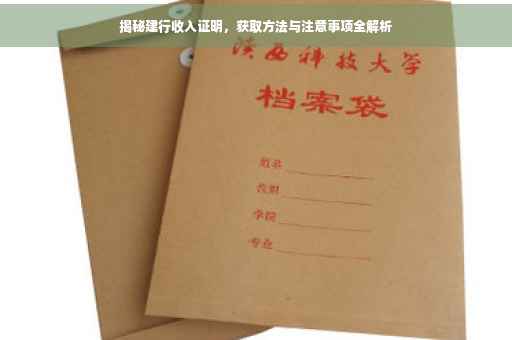 揭秘建行收入证明，获取方法与注意事项全解析
陕西科技大学
档案袋
姓名
学院
专业